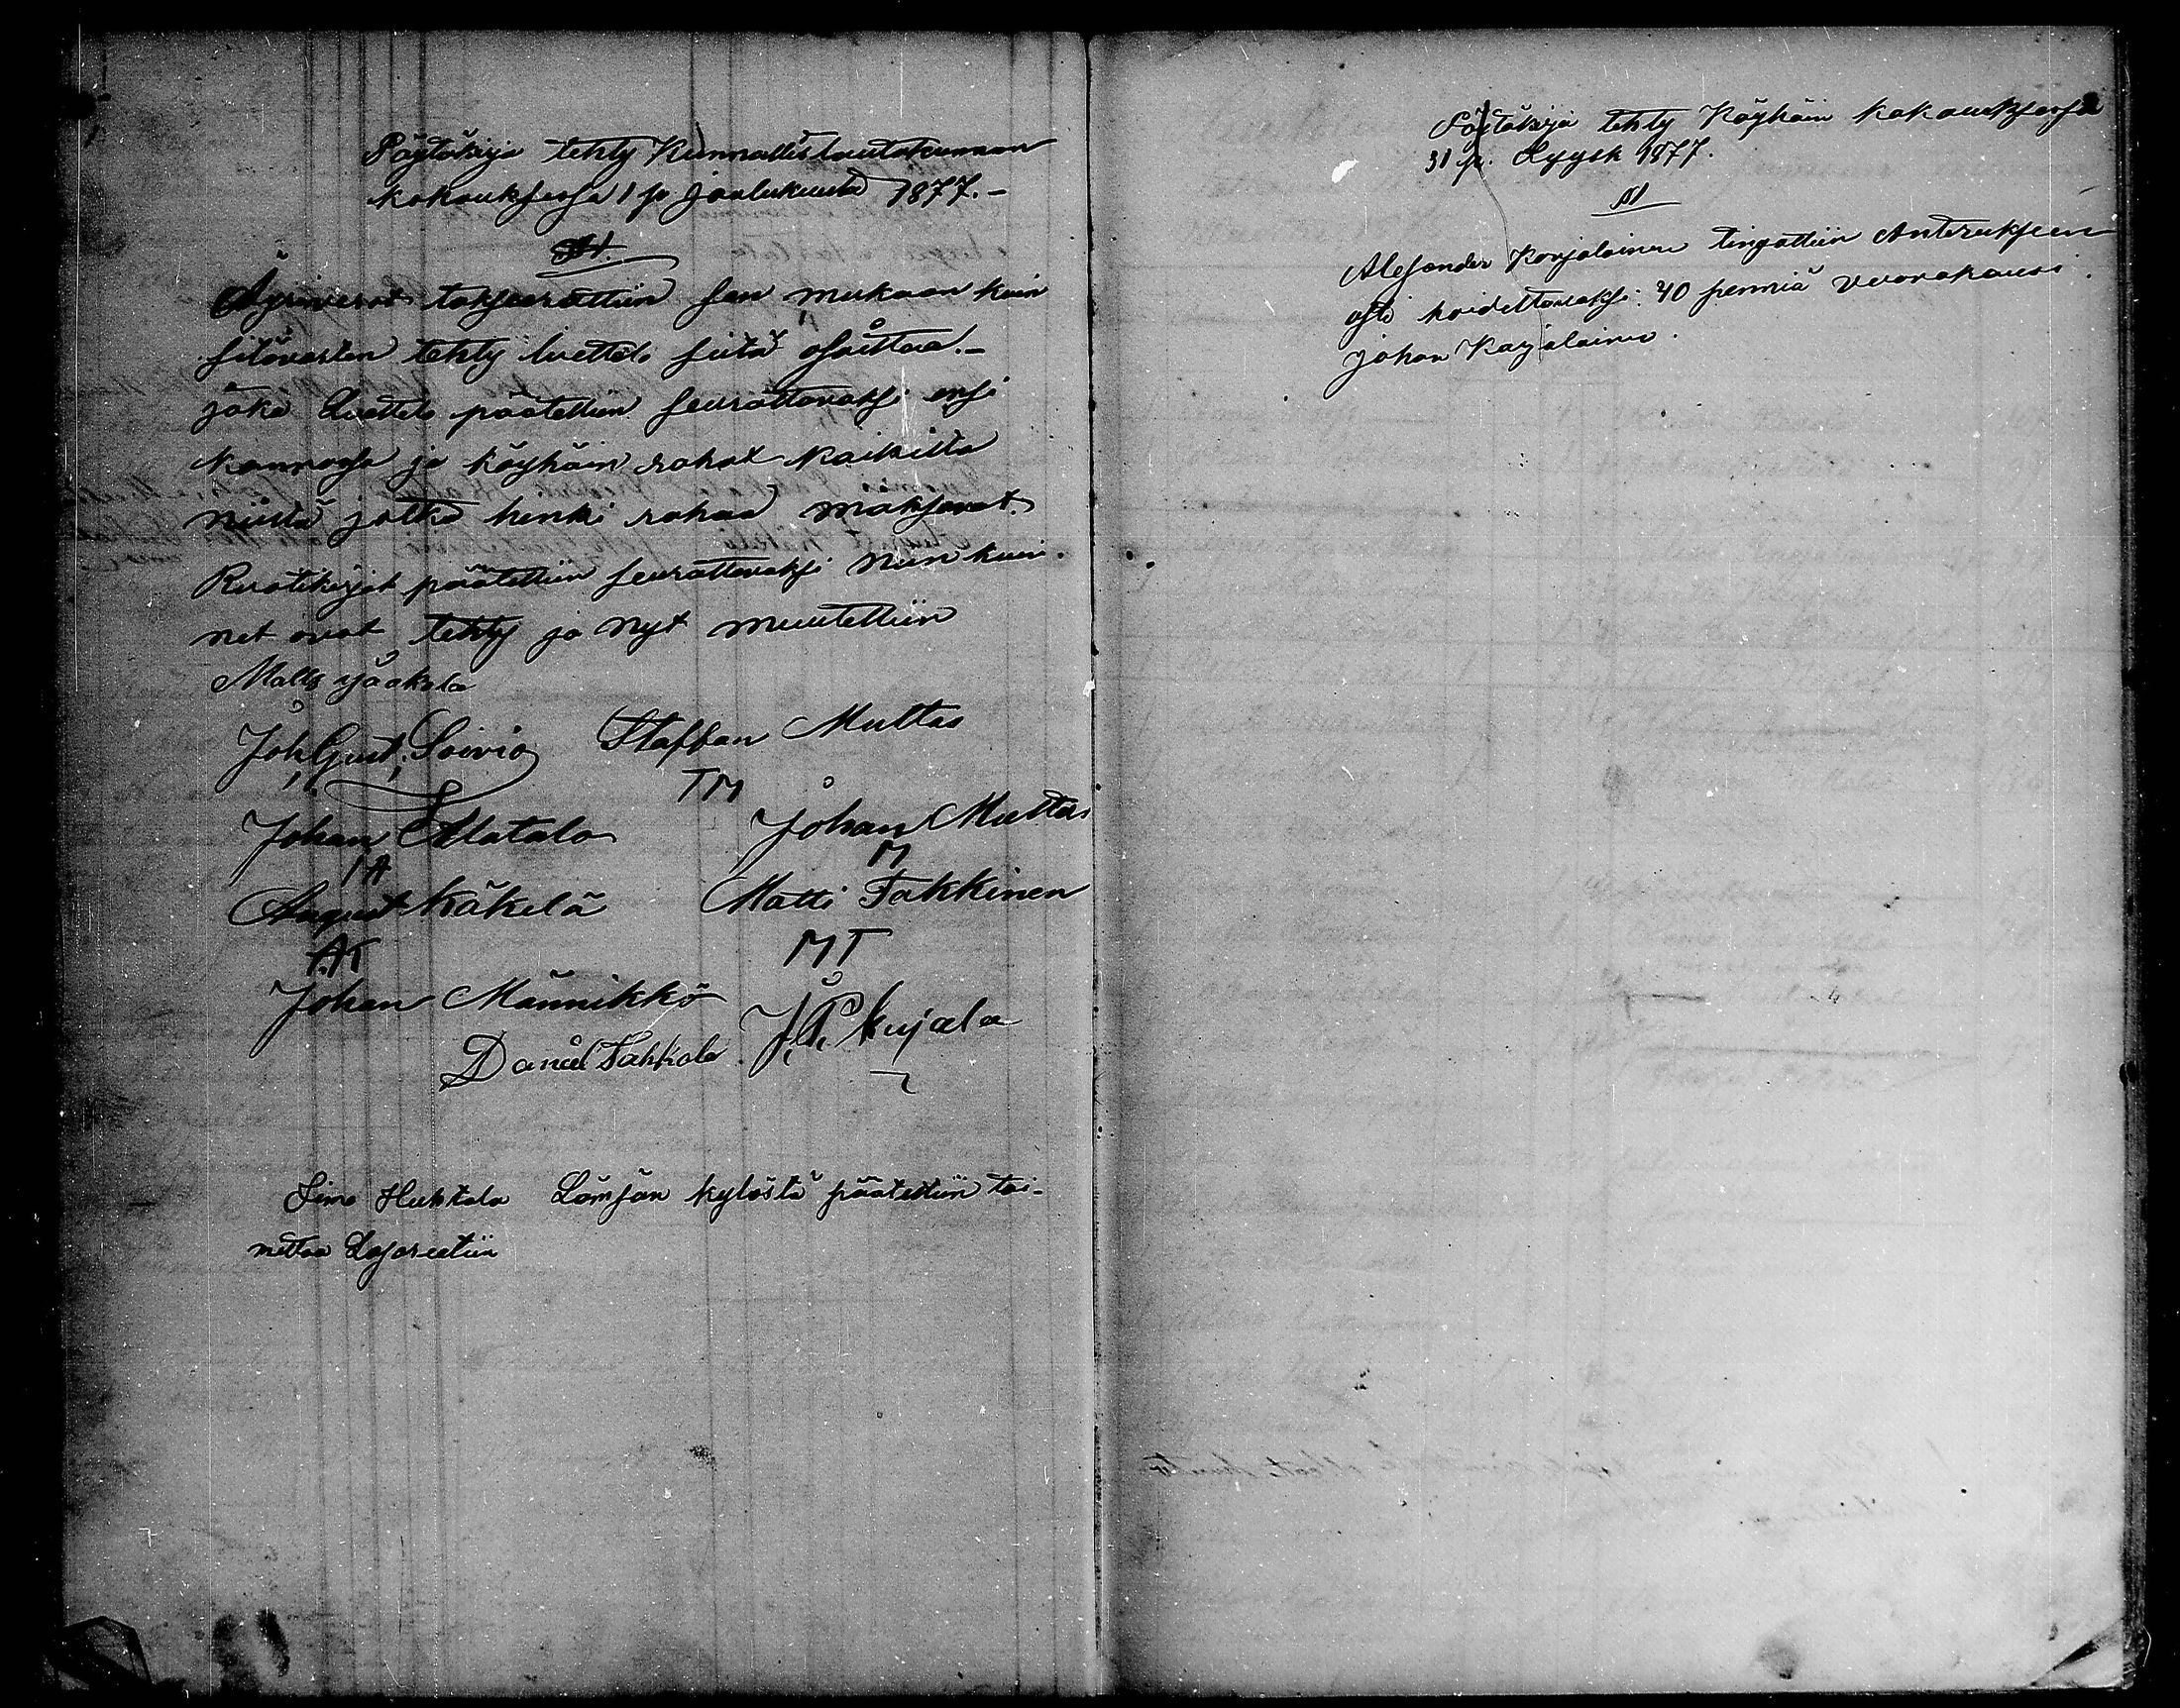 Pöytäkirja tehty Kunnallislautakunnan
kokouksessa 1 p. joulukuuta 1877.-
§1.
Äyriverot takseerattiin sen mukaan kuin
sitövarten tehty luettelo siitä osoittaa.-
joka Luettelo päätettiin seurattavaksi ensi
kannossa ja köyhäin rahat kaikilta
niiltä jotka henki rahaa maksavat.
Ruotikirjat päätettiin seurattavaksi niin kuin
net ovat tehty ja nyt muutettiin
Matts Jaakola
Joh, Gust, Soivio Staffan Multas
TM
Johan Alatalo Johan Multas
IA M
August Käkelä Matti Takkinen
AK MT
Johan Männikkö J. P. Kujala
Daniel Tahkola
Simo Huhtala Lämsän kylöstä päätettiin toi-
mettaa Lasareetiin
Pöytäkirja tehty Köyhäin kokouksessa
31 p. Syysk 1877.
§1
Alesander Karjalainen tingattiin Anterukseen
asti hoidettavaksi: 40 penniä vuorokausi.
Johan Karjalainen.